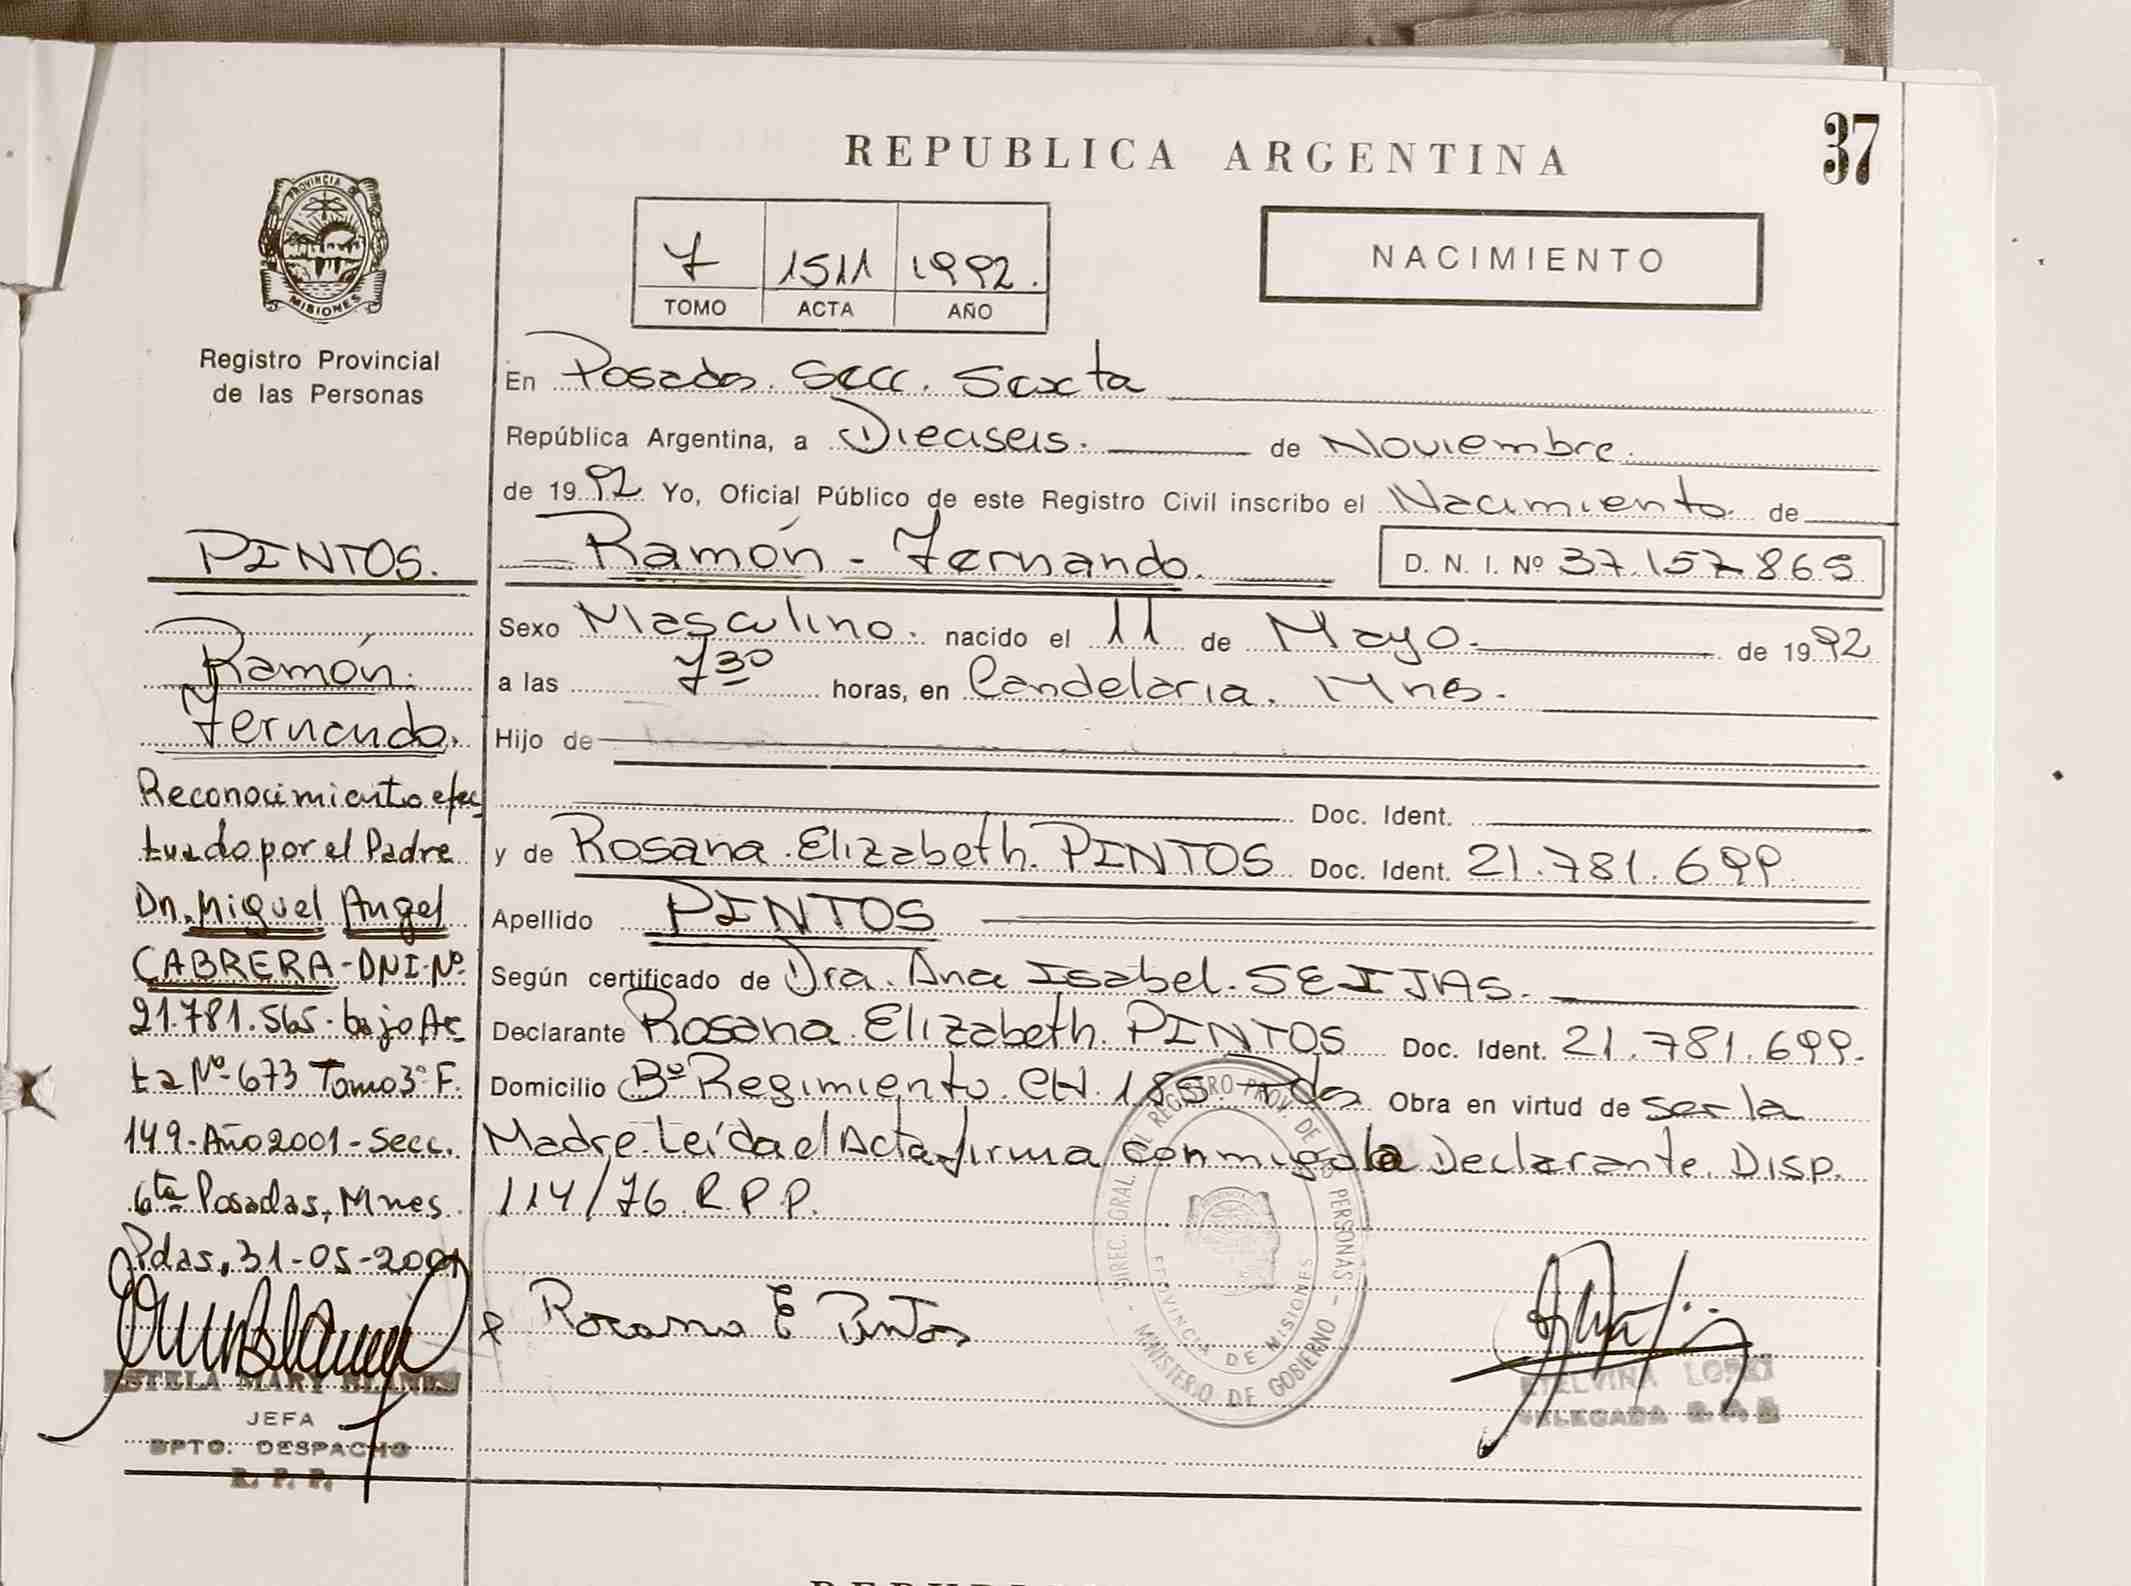 REPUBLICA ARGENTINA
37
PROVINCIA DE
MISIONES
Registro Provincial
de las Personas
7 1511 1992.
TOMO ACTA AÑO
NACIMIENTO
En Posadas. Secc. Sexta
República Argentina, a Dieciseis. de Noviembre.
de 1992 Yo, Oficial Público de este Registro Civil inscribo el Nacimiento de
Ramón - Fernando. D. N. I. Nº 37.157.865
Sexo Masculino. nacido el 11 de Mayo. de 1992
a las 7 30 horas, en Candelaria. Mnes.
Hijo de
Doc. Ident.
y de Rosana. Elizabeth. PINTOS Doc. Ident. 21.781.699
Apellido PINTOS
Según certificado de Dra. Ana Isabel. SEIJAS.
Declarante Rosana. Elizabeth. PINTOS Doc. Ident. 21.781.699.
Domicilio Bº Regimiento. CH. 185. Pdas Obra en virtud de ser la
Madre. Leída el Acta firma conmigo la Declarante. Disp.
114/76. R.P.P.
Rosana E Pintos
PINTOS.
Ramón.
Fernando.
Reconocimiento efec
tuado por el Padre
Dn. Miguel Angel
CABRERA - DNI. Nº
21.781.565. bajo Ac
ta Nº 673 Tomo 3º F.
149 - Año 2001 - Secc.
6ta Posadas, Mnes.
Pdas, 31-05-2001
ESTELA MARY
JEFA
DPTO. DESPACHO
R. P. P.
DIREC. GRAL. DEL REGISTRO PROV. DE LAS PERSONAS
PROVINCIA DE MISIONES
MINISTERIO DE GOBIERNO
ETELVINA
DELEGADA